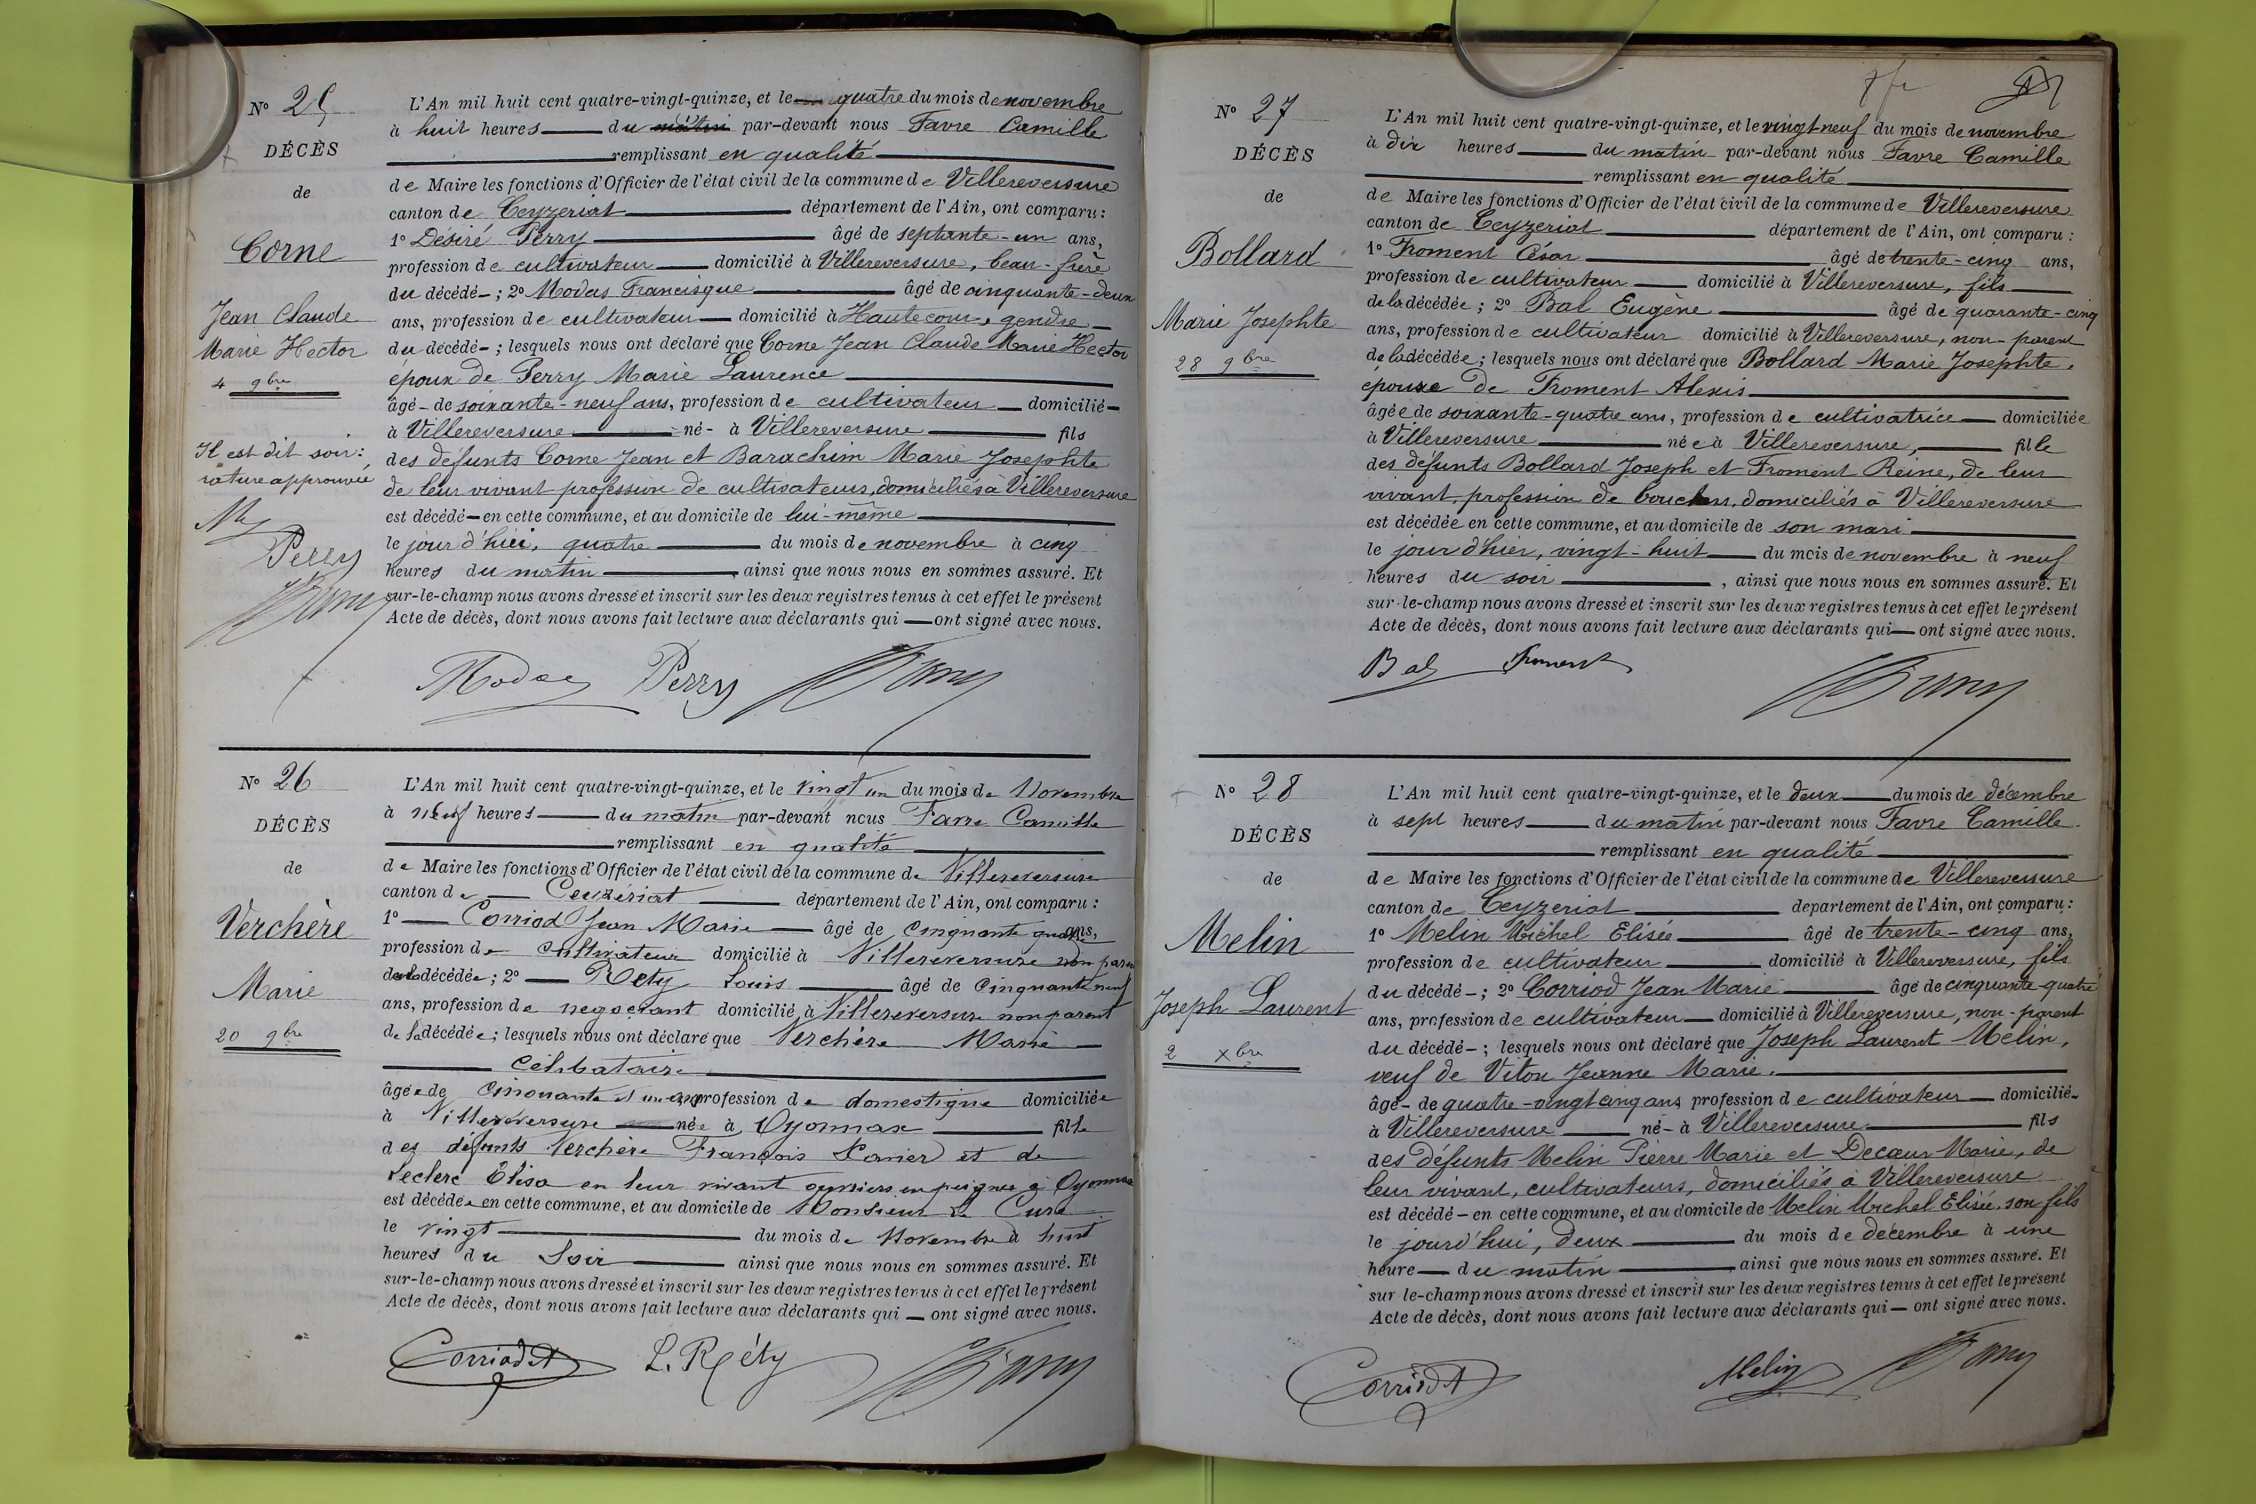 N° 25
DÉCÈS
de
Corne
Jean Claude
Marie Hector
4 9bre
Il est dit soir:
rature approuvée
Perry
L'An mil huit cent quatre-vingt-quinze, et le quatre du mois de novembre
à huit heures du matin par-devant nous Favre Camille
remplissant en qualité
de Maire les fonctions d'Officier de l'état civil de la commune de Villereversure
canton de Ceyzeriat département de l'Ain, ont comparu:
1° Désiré Perry âgé de septante-un ans,
profession de cultivateur domicilié à Villereversure, beau-frère
du décédé; 2° Modas Francisque âgé de cinquante-deux
ans, profession de cultivateur domicilié à Hautecour, gendre
du décédé; lesquels nous ont déclaré que Corne Jean Claude Marie Hector
époux de Perry Marie Laurence
âgé de soixante-neuf ans, profession de cultivateur domicilié
à Villereversure né à Villereversure fils
des défunts Corne Jean et Barachim Marie Josephte
de leur vivant profession de cultivateurs, domiciliés à Villereversure
est décédé en cette commune, et au domicile de lui-même
le jour d'hui, quatre du mois de novembre à cinq
heures du matin ainsi que nous nous en sommes assuré. Et
sur-le-champ nous avons dressé et inscrit sur les deux registres tenus à cet effet le présent
Acte de décès, dont nous avons fait lecture aux déclarants qui ont signé avec nous.
Modas Perry
N° 26
DÉCÈS
de
Verchère
Marie
20 9bre
L'An mil huit cent quatre-vingt-quinze, et le vingt un du mois de Novembre
à neuf heures du matin par-devant nous Favre Camille
remplissant en qualité
de Maire les fonctions d'Officier de l'état civil de la commune de Villereversure
canton de Ceyzériat département de l'Ain, ont comparu:
1° Corriod Jean Marie âgé de cinquante quatre ans,
profession de cultivateur domicilié à Villereversure non parent
de la décédée; 2° Réty Louis âgé de cinquante neuf
ans, profession de negociant domicilié à Villereversure non parent
de la décédée; lesquels nous ont déclaré que Verchère Marie
célibataire
âgée de cinquante et un ans profession de domestique domiciliée
à Villereversure née à Oyonnax fille
des défunts Verchère François Xavier et de
Leclerc Elisa en leur vivant ouvriers en peignes à Oyonnax
est décédée en cette commune, et au domicile de Monsieur le Curé
le vingt du mois de Novembre à huit
heures du Soir ainsi que nous nous en sommes assuré. Et
sur-le-champ nous avons dressé et inscrit sur les deux registres tenus à cet effet le présent
Acte de décès, dont nous avons fait lecture aux déclarants qui ont signé avec nous.
Corriod L. Réty
N° 27
DÉCÈS
de
Bollard
Marie Josephte
28 9bre
L'An mil huit cent quatre-vingt-quinze, et le vingt neuf du mois de novembre
à dix heures du matin par-devant nous Favre Camille
remplissant en qualité
de Maire les fonctions d'Officier de l'état civil de la commune de Villereversure
canton de Ceyzeriat département de l'Ain, ont comparu:
1° Froment César âgé de trente-cinq ans,
profession de cultivateur domicilié à Villereversure, fils
de la décédée; 2° Bal Eugène âgé de quarante-cinq
ans, profession de cultivateur domicilié à Villereversure, non-parent
de la décédée; lesquels nous ont déclaré que Bollard Marie Josephte,
épouse de Froment Alexis
âgée de soixante-quatre ans, profession de cultivatrice domiciliée
à Villereversure née à Villereversure, fille
des défunts Bollard Joseph et Froment Reine, de leur
vivant, profession de bouchers, domiciliés à Villereversure
est décédée en cette commune, et au domicile de son mari
le jour d'hier, vingt-huit du mois de novembre à neuf
heures du soir, ainsi que nous nous en sommes assuré. Et
sur-le-champ nous avons dressé et inscrit sur les deux registres tenus à cet effet le présent
Acte de décès, dont nous avons fait lecture aux déclarants qui ont signé avec nous.
Bal Froment
N° 28
DÉCÈS
de
Melin
Joseph Laurent
2 Xbre
L'An mil huit cent quatre-vingt-quinze, et le deux du mois de décembre
à sept heures du matin par-devant nous Favre Camille
remplissant en qualité
de Maire les fonctions d'Officier de l'état civil de la commune de Villereversure
canton de Ceyzeriat departement de l'Ain, ont comparu:
1° Melin Michel Elisée âgé de trente-cinq ans,
profession de cultivateur domicilié à Villereversure, fils
du décédé; 2° Corriod Jean Marie âgé de cinquante-quatre
ans, profession de cultivateur domicilié à Villereversure, non-parent
du décédé; lesquels nous ont déclaré que Joseph Laurent Melin,
veuf de Viton Jeanne Marie.
âgé de quatre-vingt cinq ans, profession de cultivateur domicilié
à Villereversure né à Villereversure fils
des défunts Melin Pierre Marie et Decœur Marie, de
leur vivant, cultivateurs, domiciliés à Villereversure
est décédé en cette commune, et au domicile de Melin Michel Elisée, son fils
le jourd'hui, deux du mois de décembre à une
heure du matin ainsi que nous nous en sommes assuré. Et
sur-le-champ nous avons dressé et inscrit sur les deux registres tenus à cet effet le présent
Acte de décès, dont nous avons fait lecture aux déclarants qui ont signé avec nous.
Corriod Melin